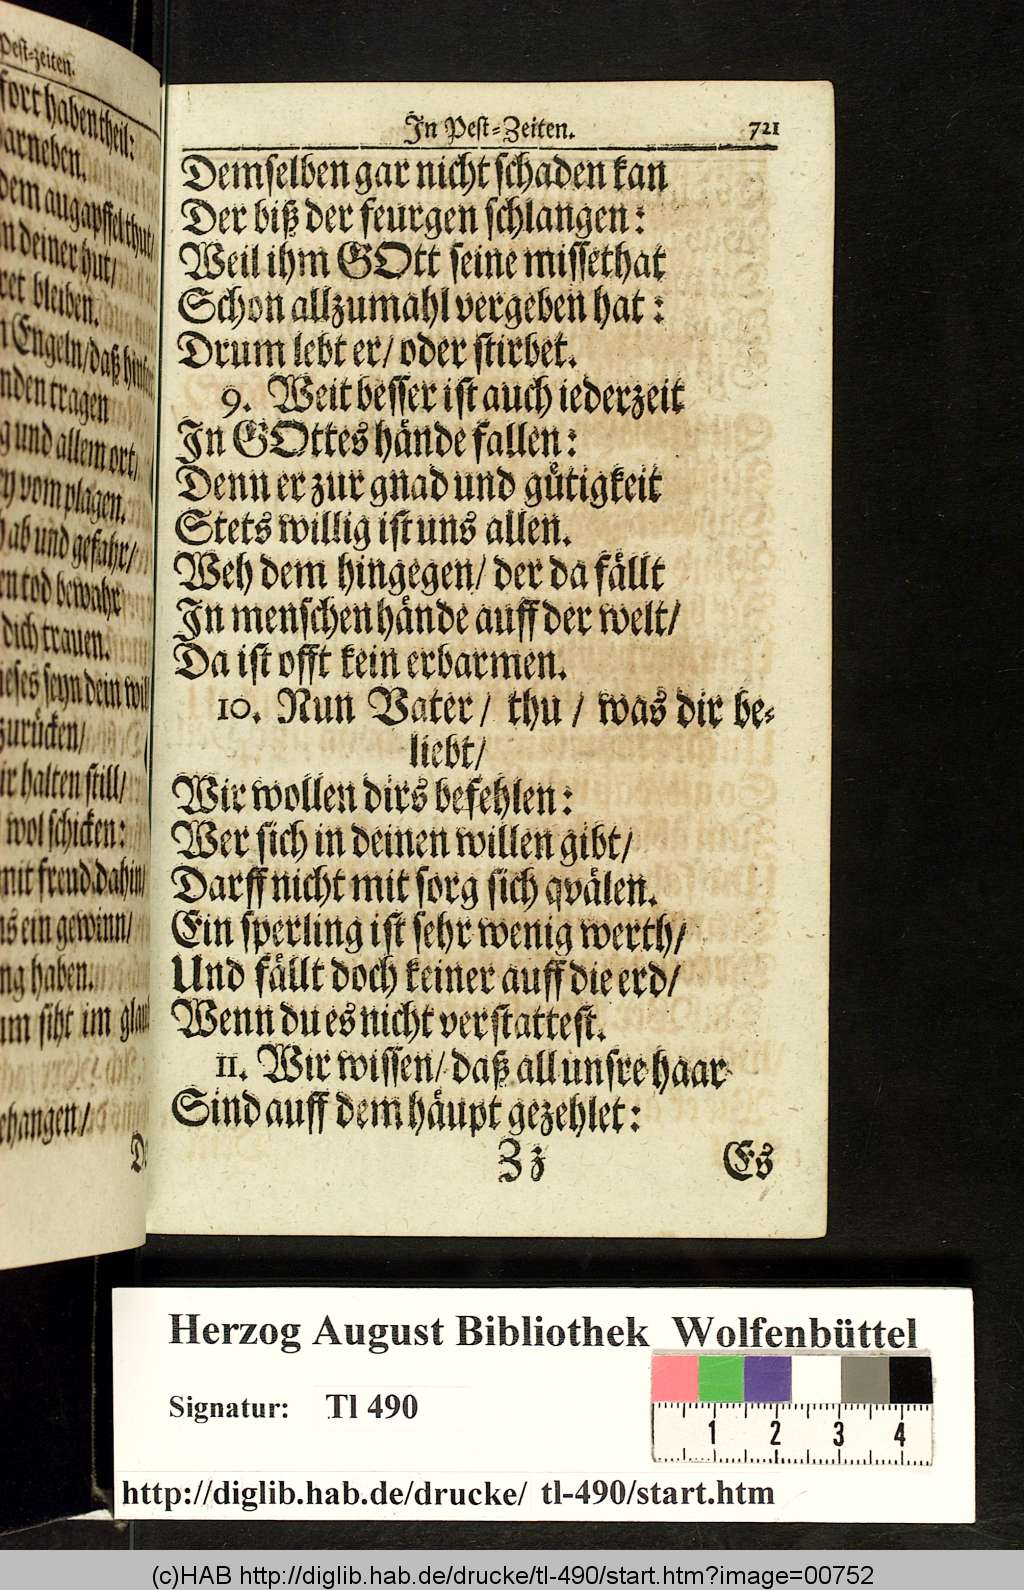 Pest-zeiten.
fort haben theil:
darneben.
dem augapffel thut/
in deiner hut/
bleiben.
Engeln/ daß
tragen
und allem ort/
vom plagen.
hab und gefahr/
tod bewahr
dich trauen.
seyn dein will
zurücken/
halten still/
wol schicken:
mit freud dahin/
ein gewinn/
haben.
siht im
In Pest-Zeiten. 721
Demselben gar nicht schaden kan
Der biß der feurgen schlangen:
Weil ihm GOtt seine missethat
Schon allzumahl vergeben hat:
Drum lebt er/ oder stirbet.
9. Weit besser ist auch iederzeit
In GOttes hände fallen:
Denn er zur gnad und gütigkeit
Stets willig ist uns allen.
Weh dem hingegen/ der da fällt
In menschen hände auff der welt/
Da ist offt kein erbarmen.
10. Nun Vater/ thu/ was dir be-
liebt/
Wir wollen dirs befehlen:
Wer sich in deinen willen gibt/
Darff nicht mit sorg sich qvälen.
Ein sperling ist sehr wenig werth/
Und fällt doch keiner auff die erd/
Wenn du es nicht verstattest.
11. Wir wissen/ daß all unsre haar
Sind auff dem häupt gezehlet:
Zz Es
Herzog August Bibliothek Wolfenbüttel
Signatur: Tl 490
1 2 3 4
http://diglib.hab.de/drucke/ tl-490/start.htm
(c)HAB http://diglib.hab.de/drucke/tl-490/start.htm?image=00752